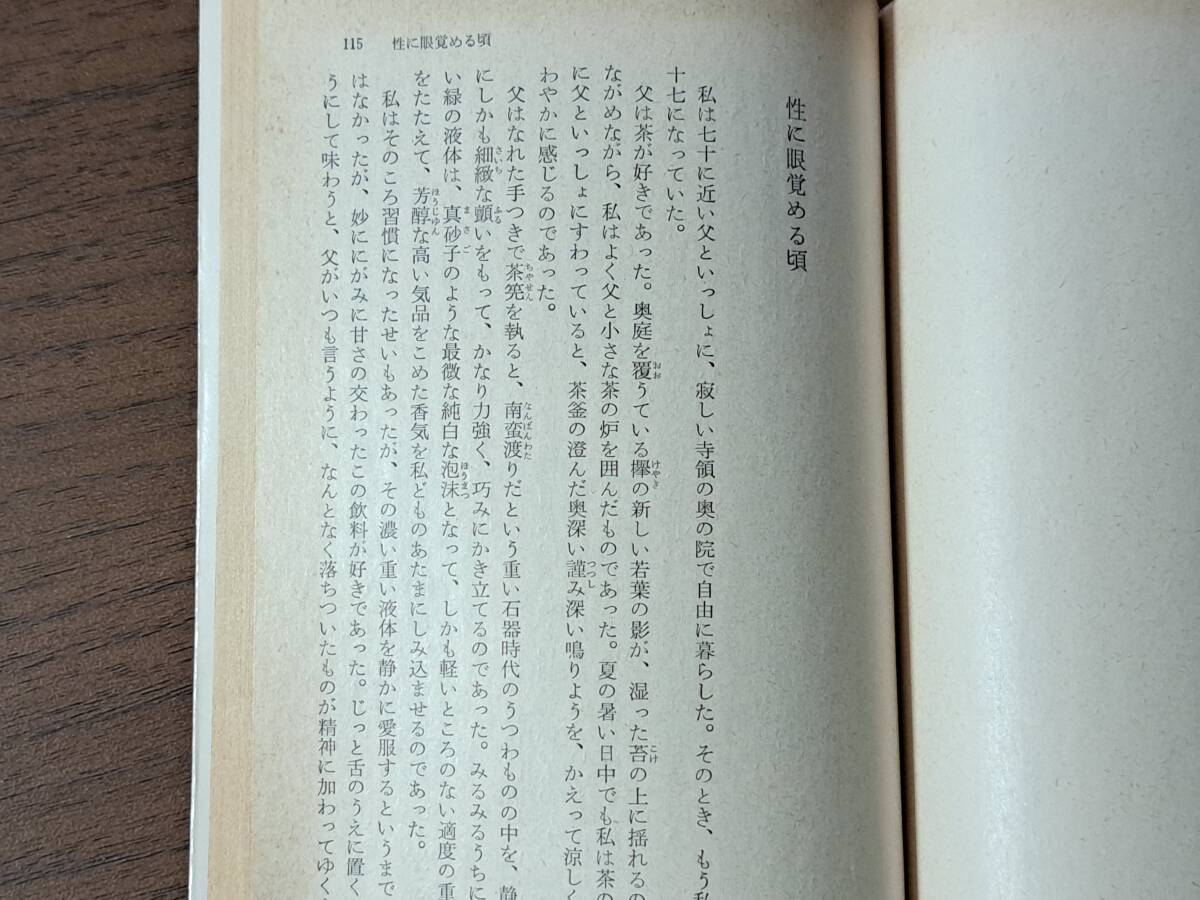 115 性に眼覚める頃
性に眼覚める頃
私は七十に近い父といっしょに、寂しい寺領の奥の院で自由に暮らした。そのとき、もう私
十七になっていた。
父は茶が好きであった。奥庭を覆うている欅の新しい若葉の影が、湿った苔の上に揺れるの
ながめながら、私はよく父と小さな茶の炉を囲んだものであった。夏の暑い日中でも私は茶の
に父といっしょにすわっていると、茶釜の澄んだ奥深い謹み深い鳴りようを、かえって涼しく
わやかに感じるのであった。
父はなれた手つきで茶筅を執ると、南蛮渡りだという重い石器時代のうつわものの中を、静
にしかも細緻な顫いをもって、かなり力強く、巧みにかき立てるのであった。みるみるうちに
い緑の液体は、真砂子のような最微な純白な泡沫となって、しかも軽いところのない適度の重
をたたえて、芳醇な高い気品をこめた香気を私どものあたまにしみ込ませるのであった。
私はそのころ習慣になったせいもあったが、その濃い重い液体を静かに愛服するというまで
はなかったが、妙ににがみに甘さの交わったこの飲料が好きであった。じっと舌のうえに置く
うにして味わうと、父がいつも言うように、なんとなく落ちついたものが精神に加わってゆく